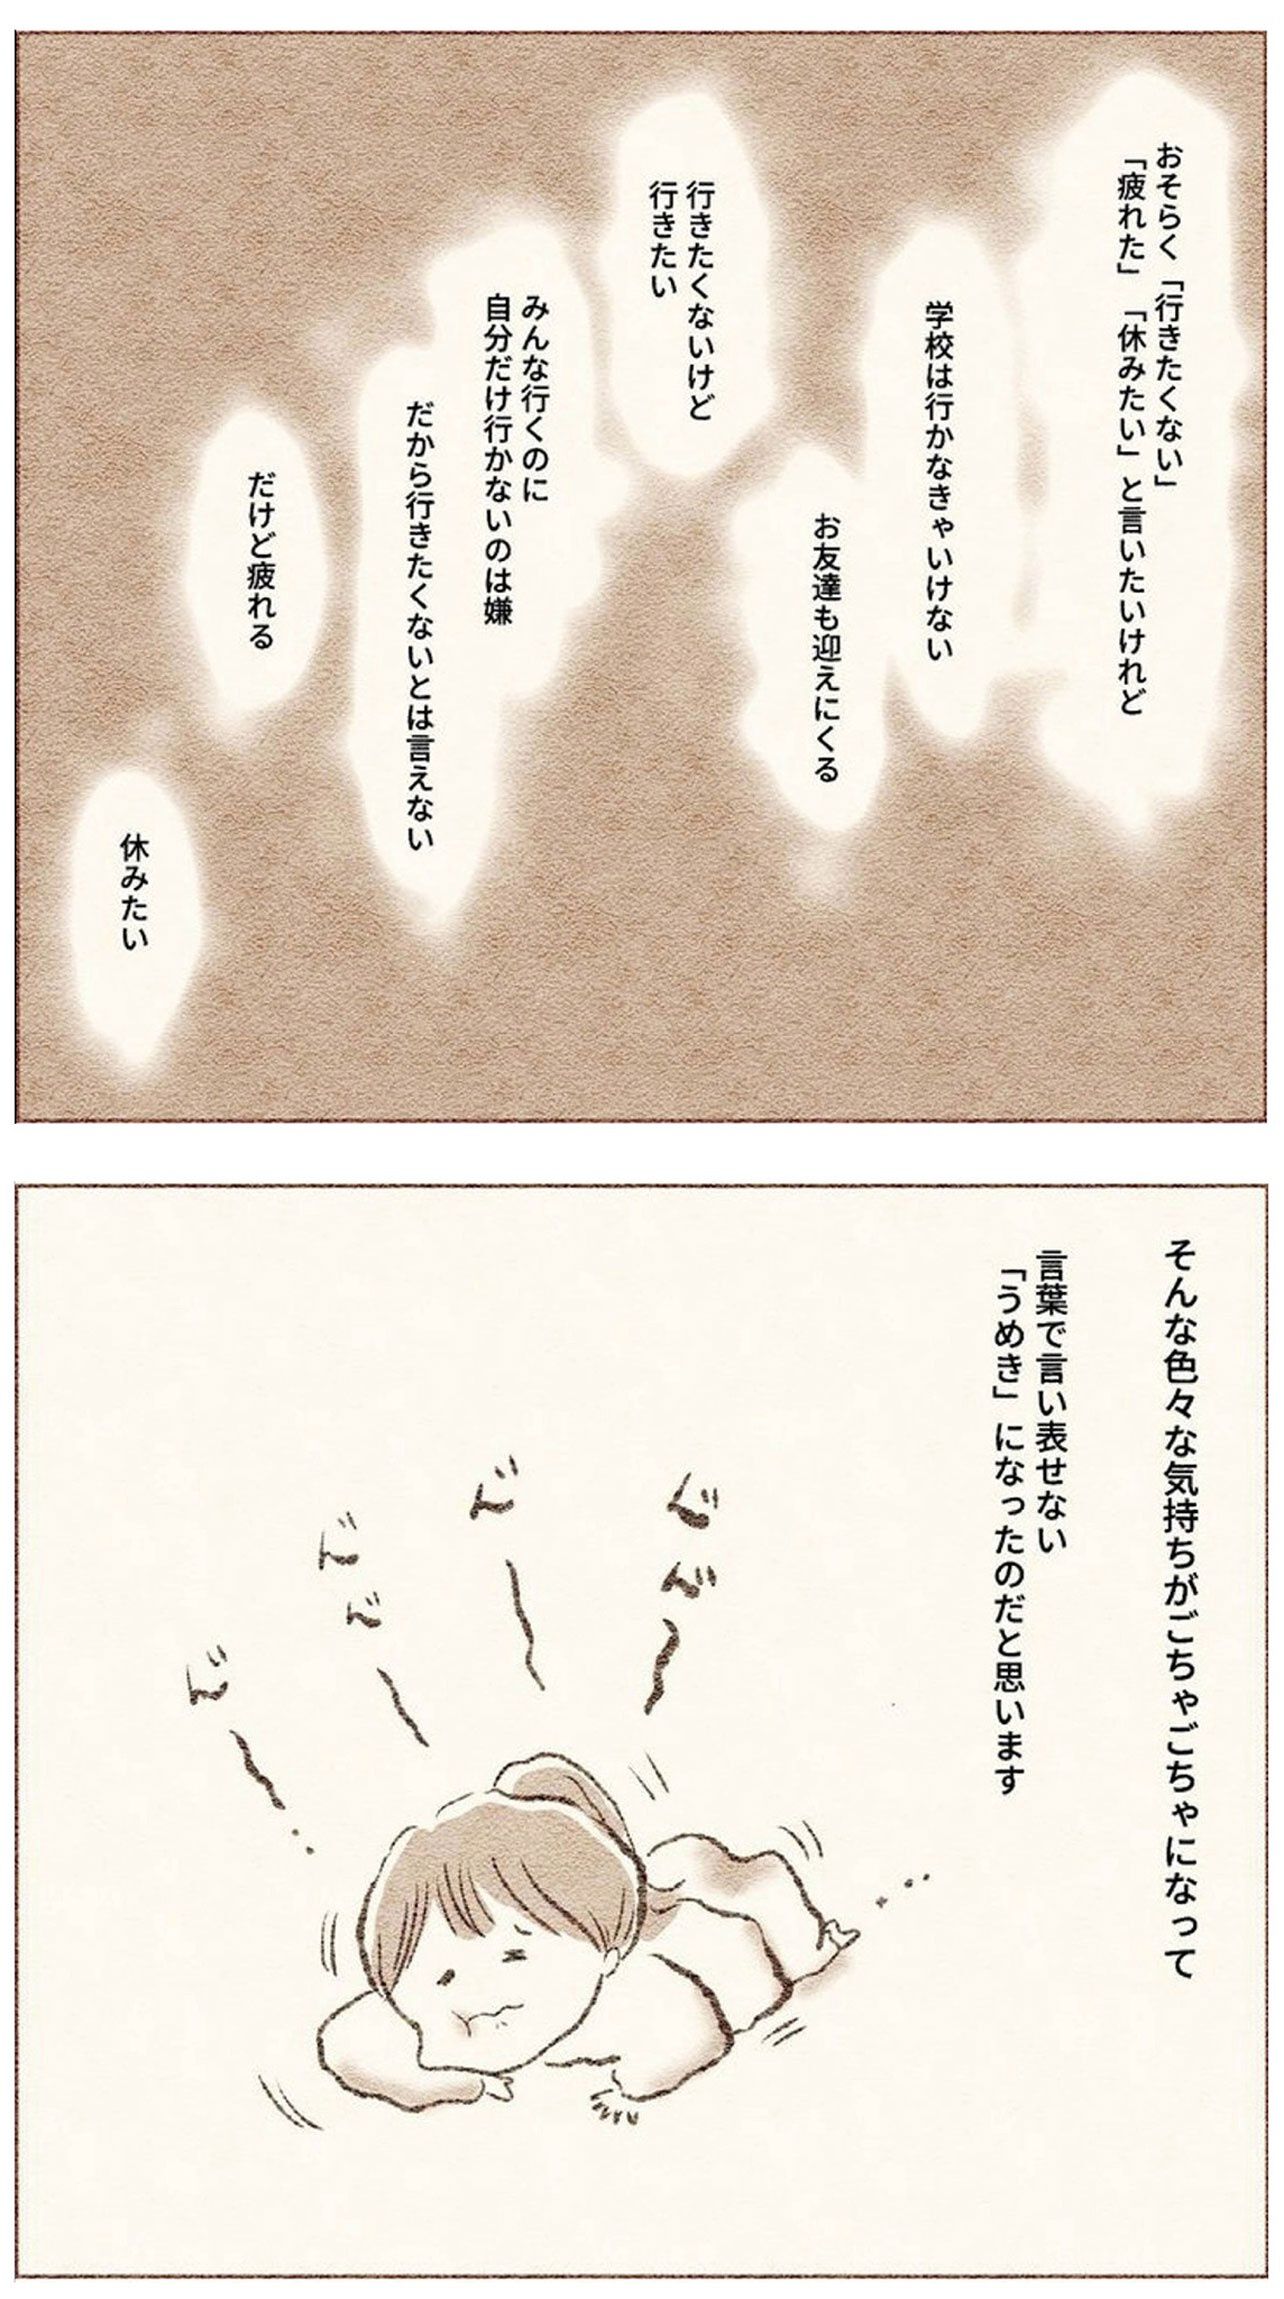 おそらく「行きたくない」
「疲れた」「休みたい」と言いたいけれど
学校は行かなきゃいけない
お友達も迎えにくる
行きたくないけど
行きたい
みんな行くのに
自分だけ行かないのは嫌
だから行きたくないとは言えない
だけど疲れる
休みたい
そんな色々な気持ちがごちゃごちゃになって
言葉で言い表せない
「うめき」になったのだと思います